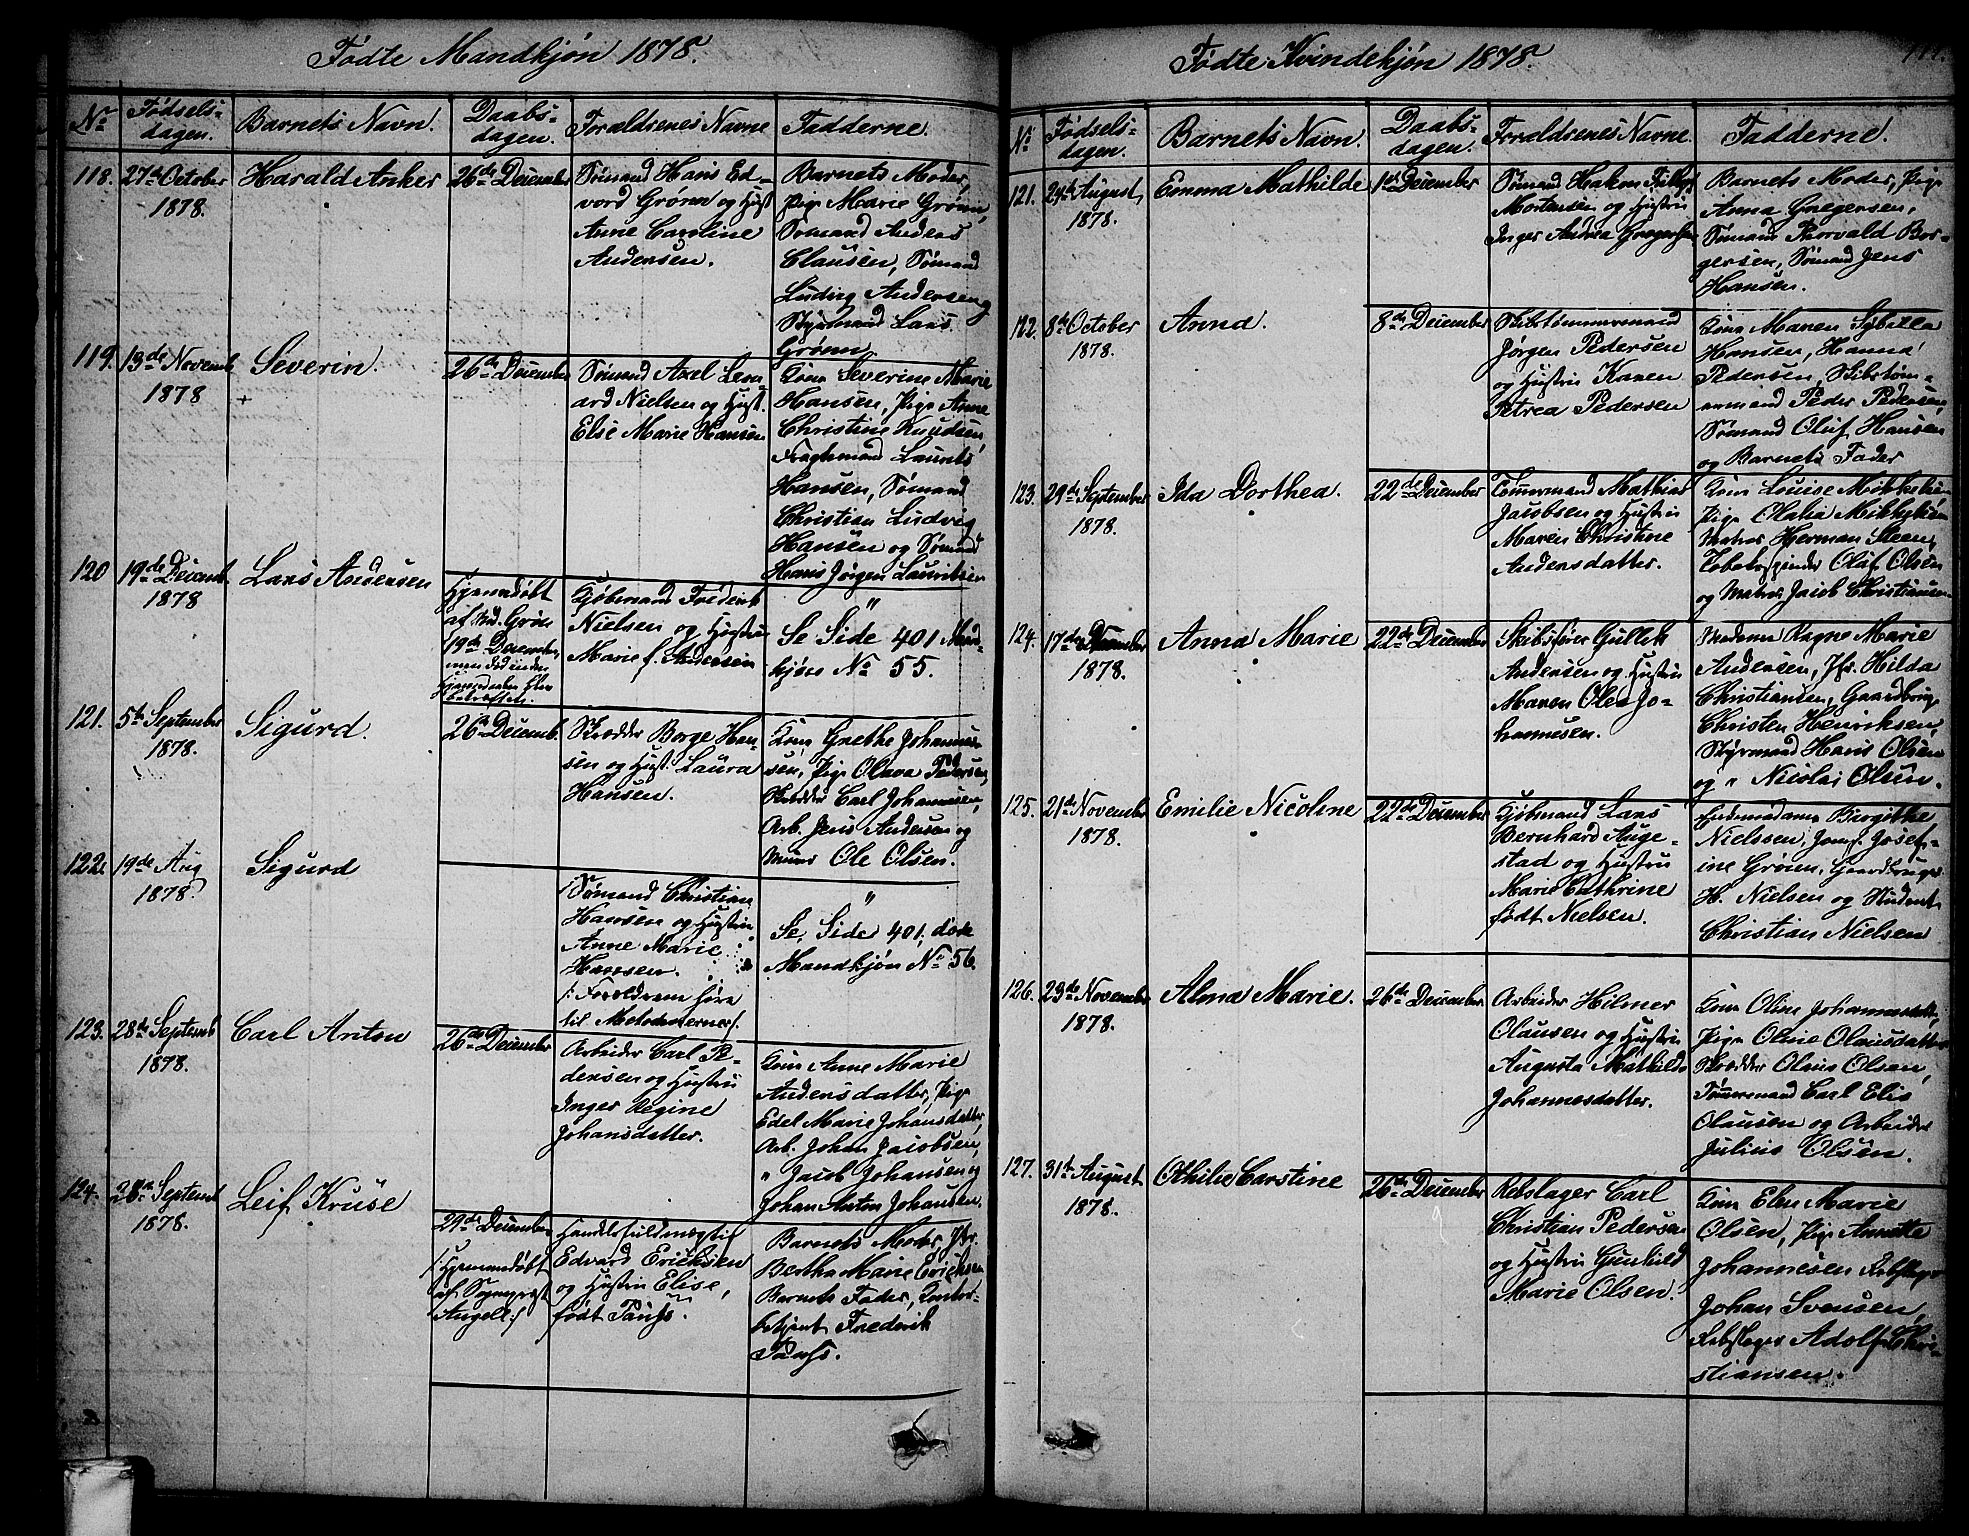 Fødte Mandkjøn 1878.
No
Fødsels-
dagen.
Barnets Navn.
Daabs-
dagen.
Forældrenes Navne
Fadderne.
118.
27de October
1878.
Harald Anker
26de December
Sømand Hans Ed-
vard Grønn og Hust
Anne Caroline
Andersen.
Barnets Moder,
Pige Marie Grønn,
Sømand Anders
Clausen, Sømand
Ludvig Andersen og
Styrmand Lars
Grønn
119.
13de Novemb
1878
Severin.
+
26de December
Sømand Axel Leon-
ard Nielsen og Hust.
Else Marie Hansen
Kone Severine Marie
Hansen, Pige Anne
Christine Knudsen
Fragtemand Laurits
Hansen, Sømand
Christian Ludvig
Hansen og Sømand
Hans Jørgen Lauritsen
120
19de Decemb.
1878
Lars Andersen
Hjemmedøbt
af Md. Grøn
19de December,
men død inden
Hjemmedaaben blev
bekræftet.
Kjøbmand Frederik
Nielsen og Hustru
Marie f. Andersen
"
Se Side 401 Mand-
kjøn No 55.
121.
5te September
1878.
Sigurd.
26de Decemb.
Skrædder Borge Han-
sen og Hust. Laura
Hansen.
Kone Grethe Johannes-
sen, Pige Olava Pedersen,
Skrædder Carl Johannesen,
Arb. Jens Andersen og
Murer Ole Olsen.
122.
19de Aug
1878.
Sigurd
Sømand Christian
Hansen og Hustru
Anne Marie
Hansen.
/: Forældrene høre
til Metodisterne :/.
"
Se, Side 401, døde
Mandkjøn No 56.
123.
28de Septemb
1878.
Carl Anton
26de December
Arbeider Carl Pe-
dersen og Hustru
Inger Regine
Johansdatter.
Kone Anne Marie
Andersdatter, Pige
Edel Marie Johansdatter,
Arb. Johan Jacobsen,
" Jacob Johansen og
Johan Anton Johansen.
124.
28de Septemb
1878.
Leif Kruse
29de December
/: Hjemmedøbt
af Sognepræst
Angell :/
Handelsfuldmægtig
Edvard Ericksen
og Hustru Elise,
født Pauss.
Barnets Moder, Jfr.
Bertha Marie Ericksen
Barnets Fader, Kontor-
betjent Frederik
Pauss.
Fødte Kvindekjøn 1878.
No
Fødsels-
dagen.
Barnets Navn.
Daabs-
dagen.
Forældrenes Navne.
Fadderne.
121.
24de August,
1878.
Emma Mathilde
1ste December
Sømand Hakon
Mortensen og Hustru
Inger Andrea Gregersen
Barnets Moder, Pige
Anna Gregersen,
Sømand Thorvald Bor-
gersen, Sømand Jens
Hansen.
122.
8de October
1878.
Anna.
8de December
Skibstømmermand
Jørgen Pedersen
og Hustru Karen
Petrea Pedersen
Kone Maren Sybilla
Hansen, Hanna
Pedersen, Skibstøm-
mermand Peder Pedersen,
Sømand Oluf Hansen
og Barnets Fader
123.
29de September
1878.
Ida Dorthea.
22de December
Tømmermand Mathias
Jacobsen og Hustru
Maren Christine
Andersdatter.
Kone Louise Mikkelsen
Pige Olalia Mikkelsen
Matros Herman Steen,
Tobakspinder Oluf Olsen
og Matros Jacob Christiansen
124.
17de
1878.
Anna Marie
22de December
Skibsfører Gullik
Andersen og Hustru
Maren Olea Jo-
hannesen.
Madame Ragne Marie
Andersen, Jfr. Hilda
Christiansen, Gaardbrug.
Christen Henriksen,
Styrmand Hans Olsen
og " Nicolai Olsen.
125.
21de November
1878.
Emilie Nicoline
22de December
Kjøbmand Lars
Bernhard Auge-
stad og Hustru
Marie Cathrine
født Nielsen.
Enkemadame Birgithe
Nielssen, Jomf. Josef-
ine Grøien, Gaardbruger
H. Nielsen og Student
Christian Nielsen
126.
23de November
1878.
Alma Marie.
26de December
Arbeider Hilmer
Olausen og Hustru
Augusta Mathilde
Johannesdatter.
Kone Oline Johannesdatter,
Pige Oline Olausdatter
Skrædder Olaus Olsen,
Tømmermand Carl Elis
Olausen og Arbeider
Julius Olsen.
127.
31te August
1878.
Othilie Carstine
26de December
Rebslager Carl
Christian Pedersen
og Hustru Gunhild
Marie Olsen.
Kone Elen Marie
Olsen, Pige Annette
Johannesen Rebslager
Johan Svensen,
Rebslager Adolf Chri-
stiansen.